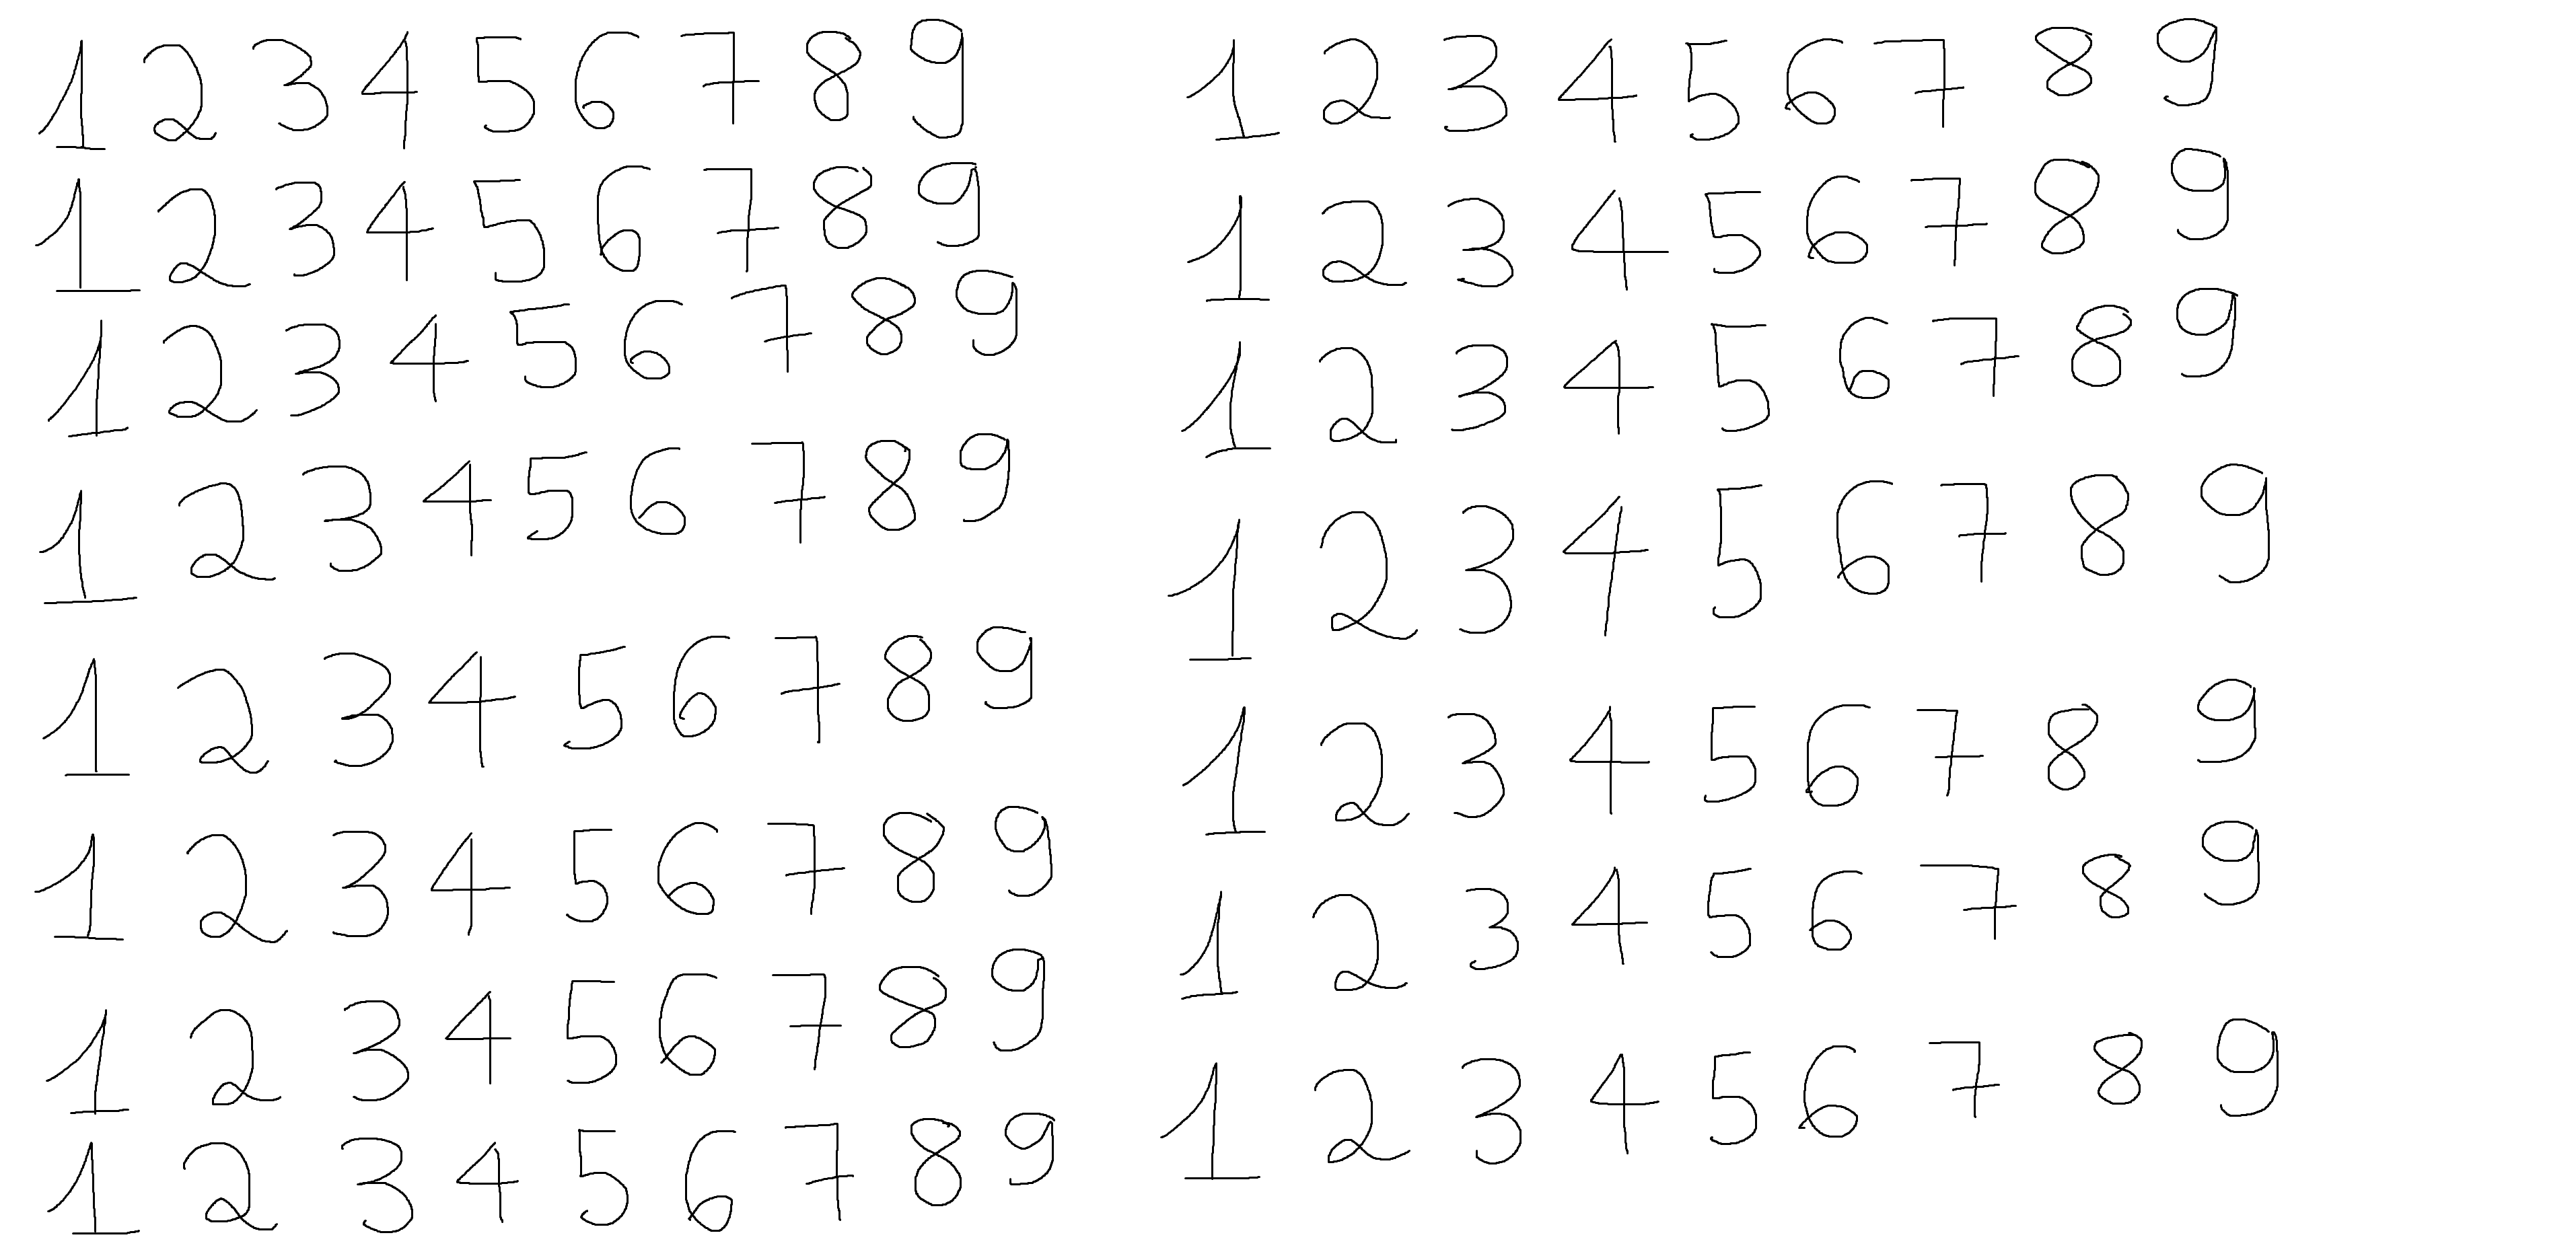 1 2 3 4 5 6 7 8 9 1 2 3 4 5 6 7 8 9
1 2 3 4 5 6 7 8 9 1 2 3 4 5 6 7 8 9
1 2 3 4 5 6 7 8 9 1 2 3 4 5 6 7 8 9
1 2 3 4 5 6 7 8 9 1 2 3 4 5 6 7 8 9
1 2 3 4 5 6 7 8 9 1 2 3 4 5 6 7 8 9
1 2 3 4 5 6 7 8 9 1 2 3 4 5 6 7 8 9
1 2 3 4 5 6 7 8 9 1 2 3 4 5 6 7 8 9
1 2 3 4 5 6 7 8 9